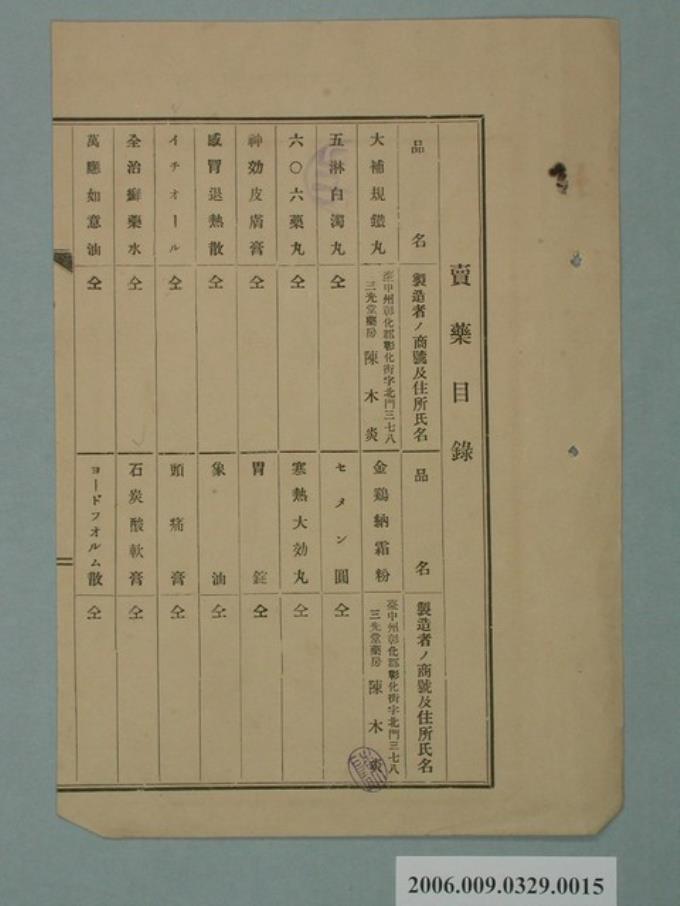 賣藥目錄
品名
製造者ノ商號及住所氏名
品名
製造者ノ商號及住所氏名
大補規鐵丸
臺中州彰化郡彰化街字北門三七八
三光堂藥房 陳木炎
金鶏納霜粉
臺中州彰化郡彰化街字北門三七八
三光堂藥房 陳木炎
五淋白濁丸
仝
セメン圓
仝
六〇六藥丸
仝
寒熱大効丸
仝
神効皮膚膏
仝
胃錠
仝
感冒退熱散
仝
象油
仝
イチオール
仝
頭痛膏
仝
全治癬藥水
仝
石炭酸軟膏
仝
萬應如意油
仝
ヨードフオルム散
仝
2006.009.0329.0015